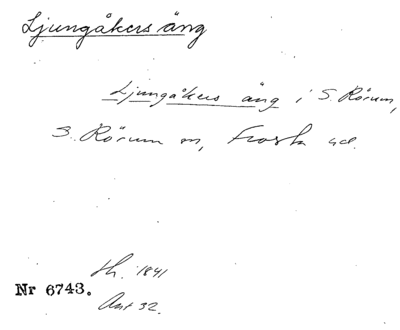 Ljungåkers äng
Ljungåkers äng i S. Rörum,
S. Rörum sn, Frosta hd.
Nr 6743.
1841
Ant 32.